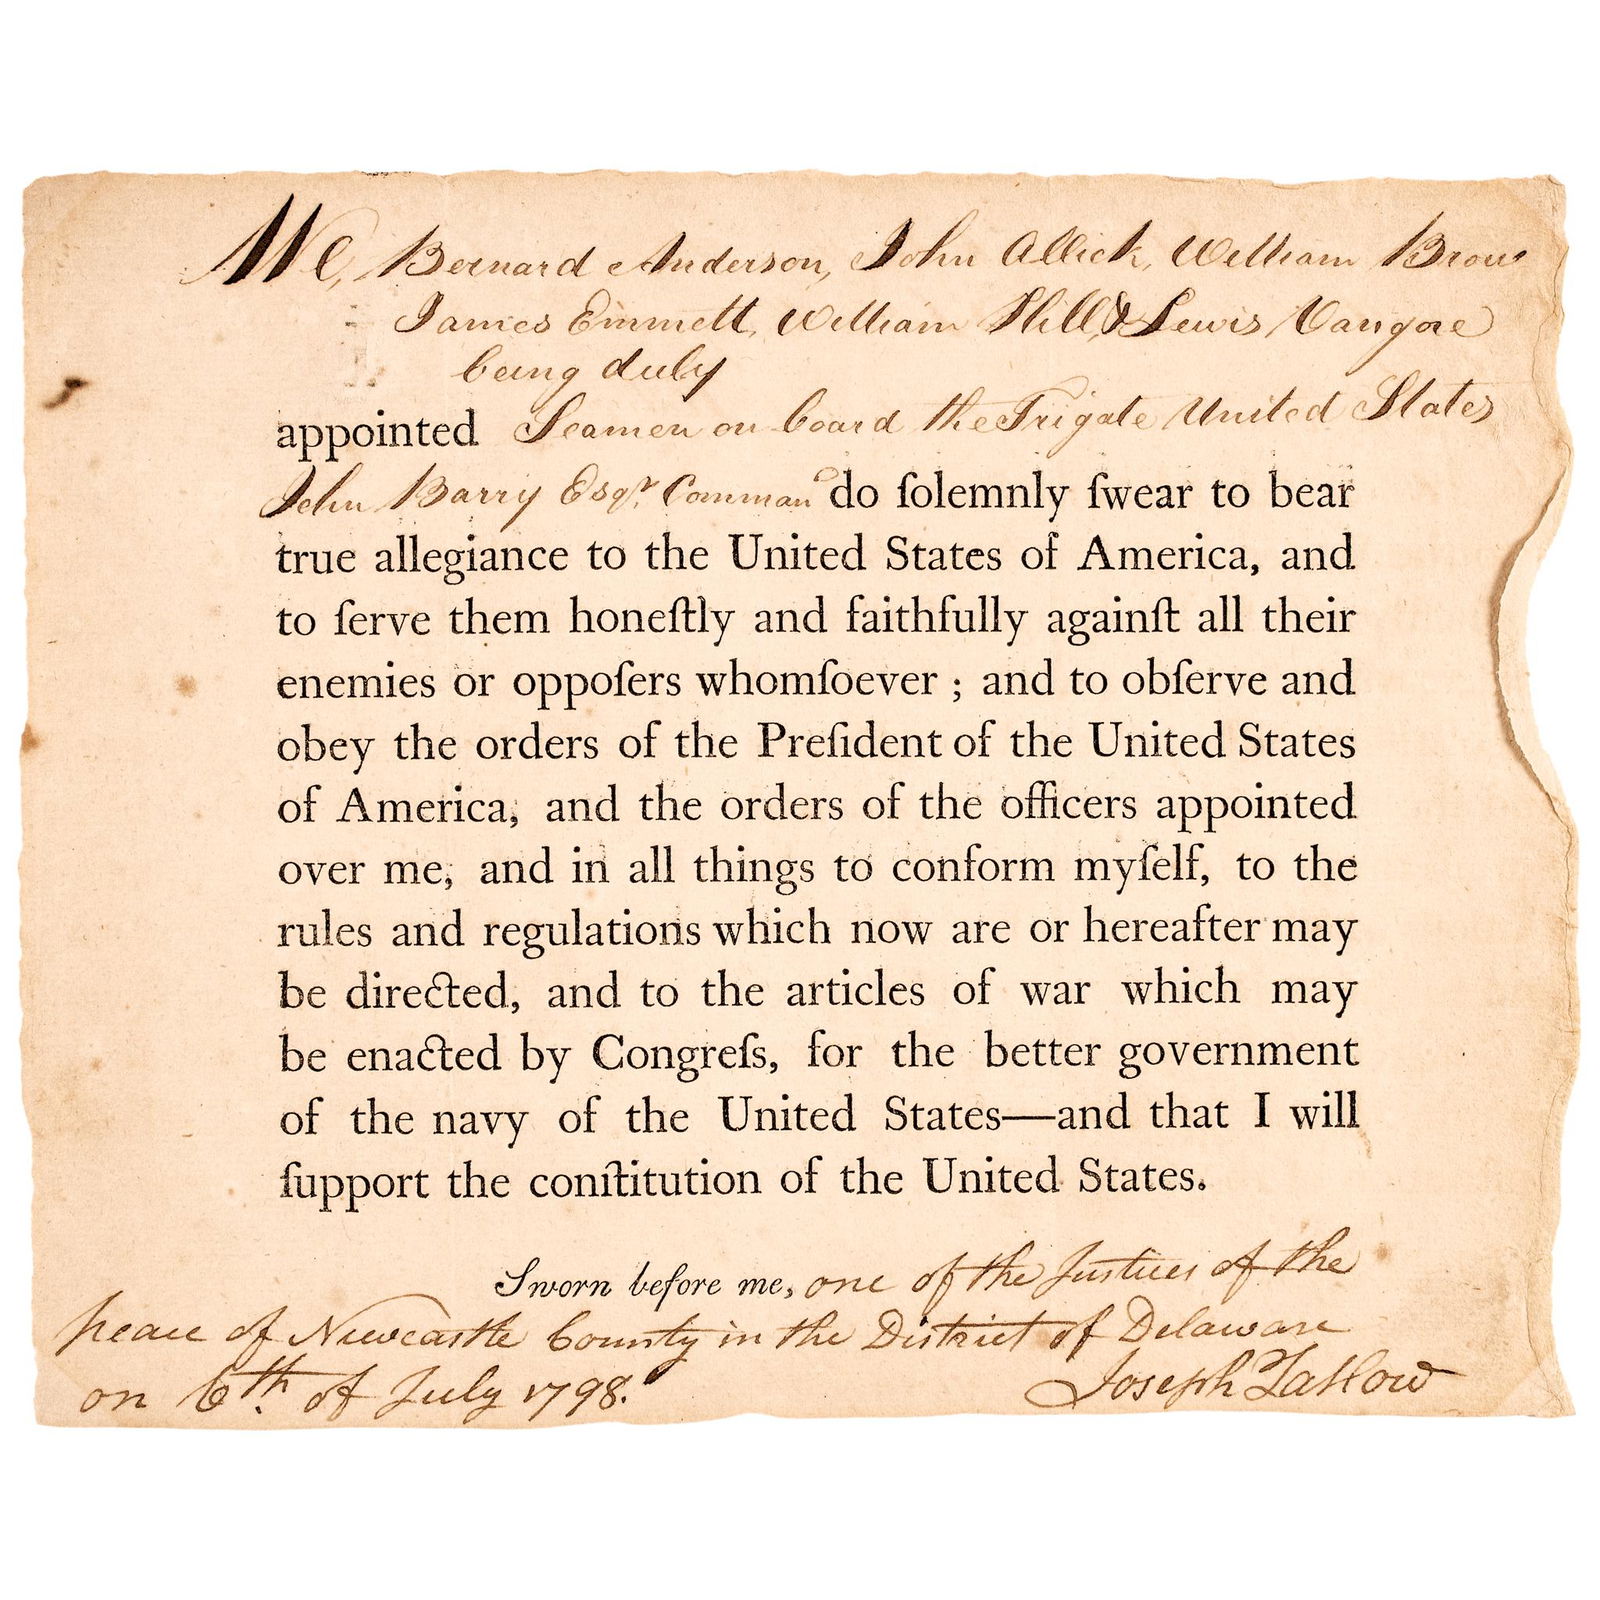 We, Bernard Anderson, John Allick, William Brown
James Emmett, William Hill, & Lewis Vangore
being duly
appointed Seamen on board the Frigate United States
John Barry Esqr. Comman do ſolemnly ſwear to bear
true allegiance to the United States of America, and
to ſerve them honeſtly and faithfully againſt all their
enemies or oppoſers whomſoever ; and to obſerve and
obey the orders of the Preſident of the United States
of America, and the orders of the officers appointed
over me, and in all things to conform myſelf, to the
rules and regulations which now are or hereafter may
be directed, and to the articles of war which may
be enacted by Congreſs, for the better government
of the navy of the United States—and that I will
ſupport the conſtitution of the United States.
Sworn before me, one of the Justices of the
peace of Newcastle County in the District of Delaware
on 6th. of July 1798.
Joseph Tatlow